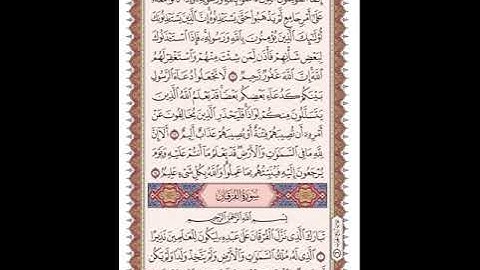 عَلَىٰٓ أَمْرٍ جَامِعٍ لَّمْ يَذْهَبُوا۟ حَتَّىٰ يَسْتَـْٔذِنُوهُ إِنَّ ٱلَّذِينَ يَسْتَـْٔذِنُونَكَ
أُو۟لَٰٓئِكَ ٱلَّذِينَ يُؤْمِنُونَ بِٱللَّهِ وَرَسُولِهِۦ فَإِذَا ٱسْتَـْٔذَنُوكَ
لِبَعْضِ شَأْنِهِمْ فَأْذَن لِّمَن شِئْتَ مِنْهُمْ وَٱسْتَغْفِرْ لَهُمُ
ٱللَّهَ إِنَّ ٱللَّهَ غَفُورٌ رَّحِيمٌ ٦٢ لَّا تَجْعَلُوا۟ دُعَآءَ ٱلرَّسُولِ
بَيْنَكُمْ كَدُعَآءِ بَعْضِكُم بَعْضًا قَدْ يَعْلَمُ ٱللَّهُ ٱلَّذِينَ
يَتَسَلَّلُونَ مِنكُمْ لِوَاذًا فَلْيَحْذَرِ ٱلَّذِينَ يُخَالِفُونَ عَنْ
أَمْرِهِۦٓ أَن تُصِيبَهُمْ فِتْنَةٌ أَوْ يُصِيبَهُمْ عَذَابٌ أَلِيمٌ ٦٣ أَلَآ إِنَّ
لِلَّهِ مَا فِى ٱلسَّمَٰوَٰتِ وَٱلْأَرْضِ قَدْ يَعْلَمُ مَآ أَنتُمْ عَلَيْهِ وَيَوْمَ
يُرْجَعُونَ إِلَيْهِ فَيُنَبِّئُهُم بِمَا عَمِلُوا۟ وَٱللَّهُ بِكُلِّ شَىْءٍ عَلِيمٌ ٦٤
سُورَةُ الفُرْقَانِ
بِسْمِ ٱللَّهِ ٱلرَّحْمَٰنِ ٱلرَّحِيمِ
تَبَارَكَ ٱلَّذِى نَزَّلَ ٱلْفُرْقَانَ عَلَىٰ عَبْدِهِۦ لِيَكُونَ لِلْعَٰلَمِينَ نَذِيرًا ١
ٱلَّذِى لَهُۥ مُلْكُ ٱلسَّمَٰوَٰتِ وَٱلْأَرْضِ وَلَمْ يَتَّخِذْ وَلَدًا وَلَمْ يَكُن